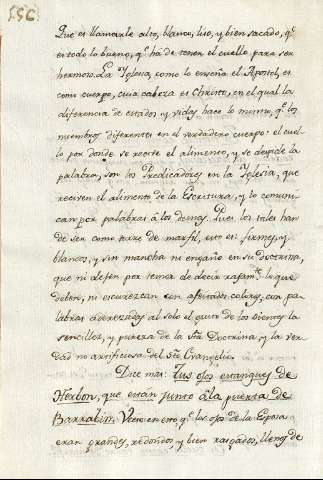 256
Que es llamarle alto, blanco, liso, y bien sacado, qᵉ
es todo lo bueno, qᵉ ha de tener el cuello, para ser
hermoso. La Iglesia, como lo enseña el Apostol, es
como cuerpo, cuia cabeza es Christo, en el qual la
diferencia de estados, y vidas hace lo mismo, qᵉ los
miembros diferentes en el verdadero cuerpo: el cue-
llo por donde se recive el alimento, y se despide la
palabra, son los Predicadores en la Iglesia, que
reciven el alimento de la Escritura, y lo comuni-
can por palabras à los demas. Pues los tales han
de ser como torre de marfil, esto es: firmes, y
blancos, y sin mancha ni engaño en su doctrina,
que ni dejen por temor de decir rasamᵗᵉ lo que
deben, ni escurezcan con afeitados colores, con pa-
labras aderezadas al solo el gusto de los oientes la
sencillez, y pureza de la Sᵗᵃ Doctrina, y la ver-
dad no artificiosa del Sᵗᵒ Evangelio.
Dice mas: Tus ojos estanques de
Hesbon, que estan junto à la puerta de
Barrabim. Vese en esto qᵉ los ojos de la Esposa
eran grandes, redondos, y bien rasgados, llenos de